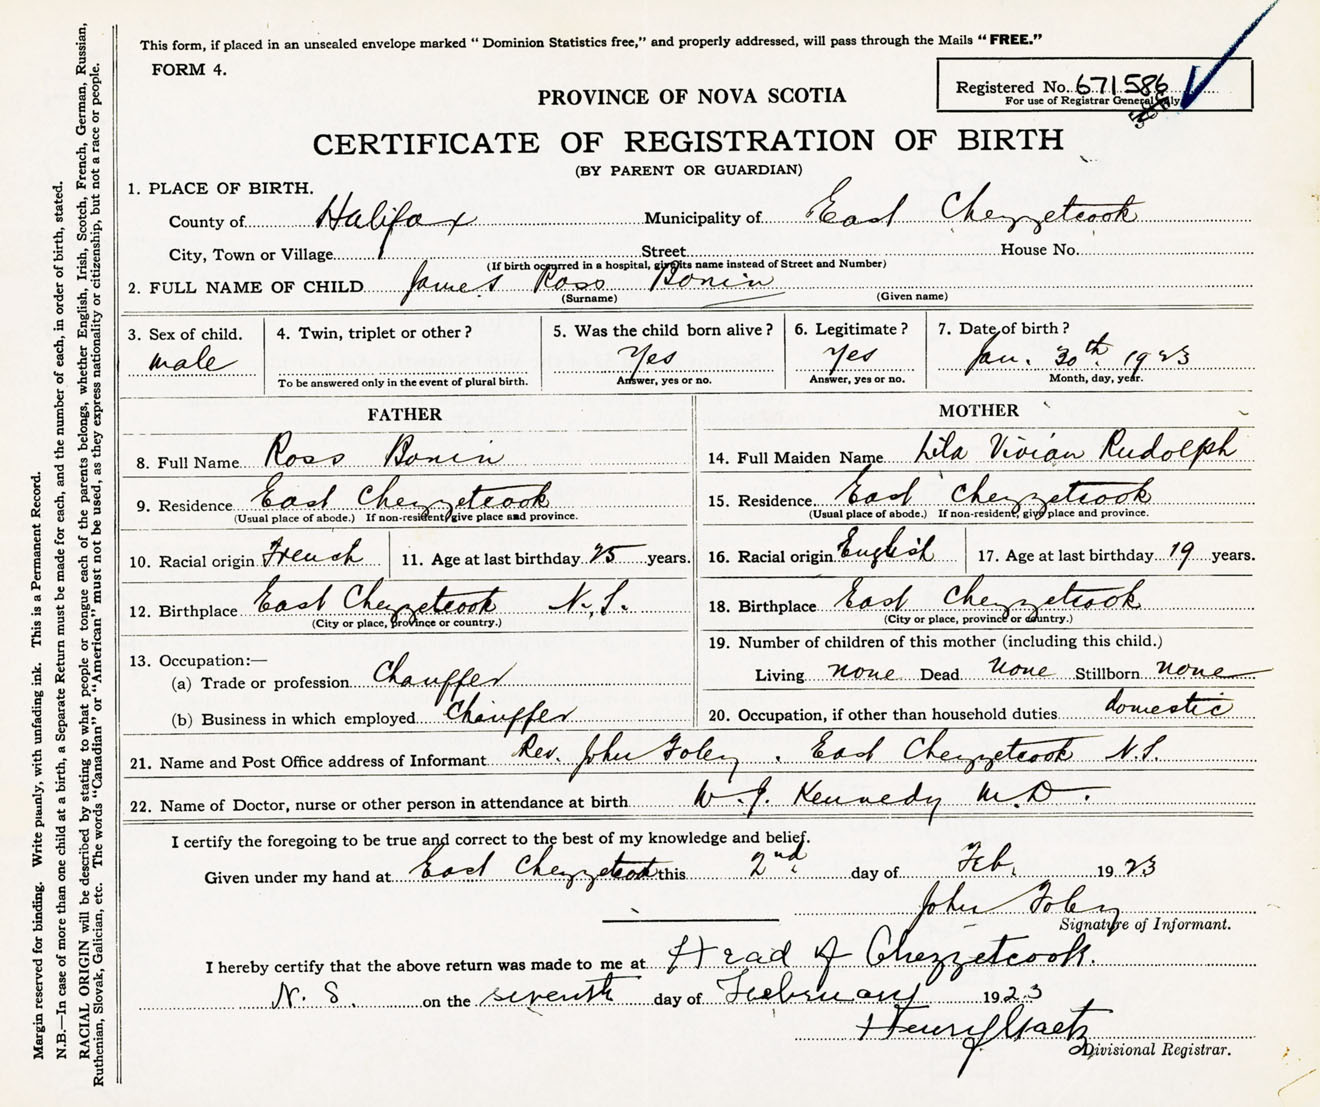 This form, if placed in an unsealed envelope marked " Dominion Statistics free," and properly addressed, will pass through the Mails " FREE."
FORM 4.
Registered No. 671586
For use of Registrar General only
PROVINCE OF NOVA SCOTIA
CERTIFICATE OF REGISTRATION OF BIRTH
(BY PARENT OR GUARDIAN)
1. PLACE OF BIRTH.
County of Halifax Municipality of East Chezzetcook
City, Town or Village Street House No.
(If birth occurred in a hospital, give its name instead of Street and Number)
2. FULL NAME OF CHILD James Ross Bonin
(Surname) (Given name)
3. Sex of child. 4. Twin, triplet or other ? 5. Was the child born alive ? 6. Legitimate ? 7. Date of birth ?
male Yes Yes Jan. 30th. 1923
To be answered only in the event of plural birth. Answer, yes or no. Answer, yes or no. Month, day, year.
FATHER MOTHER
8. Full Name Ross Bonin 14. Full Maiden Name Lila Vivian Rudolph
9. Residence East Chezzetcook 15. Residence East Chezzetcook
(Usual place of abode.) If non-resident, give place and province. (Usual place of abode.) If non-resident, give place and province.
10. Racial origin French 11. Age at last birthday 25 years. 16. Racial origin English 17. Age at last birthday 19 years.
12. Birthplace East Chezzetcook N.S. 18. Birthplace East Chezzetcook
(City or place, province or country.) (City or place, province or country.)
13. Occupation:— 19. Number of children of this mother (including this child.)
(a) Trade or profession Chauffer Living none Dead none Stillborn none
(b) Business in which employed Chauffer 20. Occupation, if other than household duties domestic
21. Name and Post Office address of Informant Rev. John Foley . East Chezzetcook N.S.
22. Name of Doctor, nurse or other person in attendance at birth W. J. Kennedy M.D.
I certify the foregoing to be true and correct to the best of my knowledge and belief.
Given under my hand at East Chezzetcook this 2nd day of Feb. 1923
John Foley
Signature of Informant.
I hereby certify that the above return was made to me at Head of Chezzetcook.
N. S. on the seventh day of February 1923
Henry Gaetz
Divisional Registrar.
Margin reserved for binding. Write plainly, with unfading ink. This is a Permanent Record.
N.B.—In case of more than one child at a birth, a Separate Return must be made for each, and the number of each, in order of birth, stated.
RACIAL ORIGIN will be described by stating to what people or tongue each of the parents belongs, whether English, Irish, Scotch, French, German, Russian,
Ruthenian, Slovak, Galician, etc. The words "Canadian" or "American" must not be used, as they express nationality or citizenship, but not a race or people.